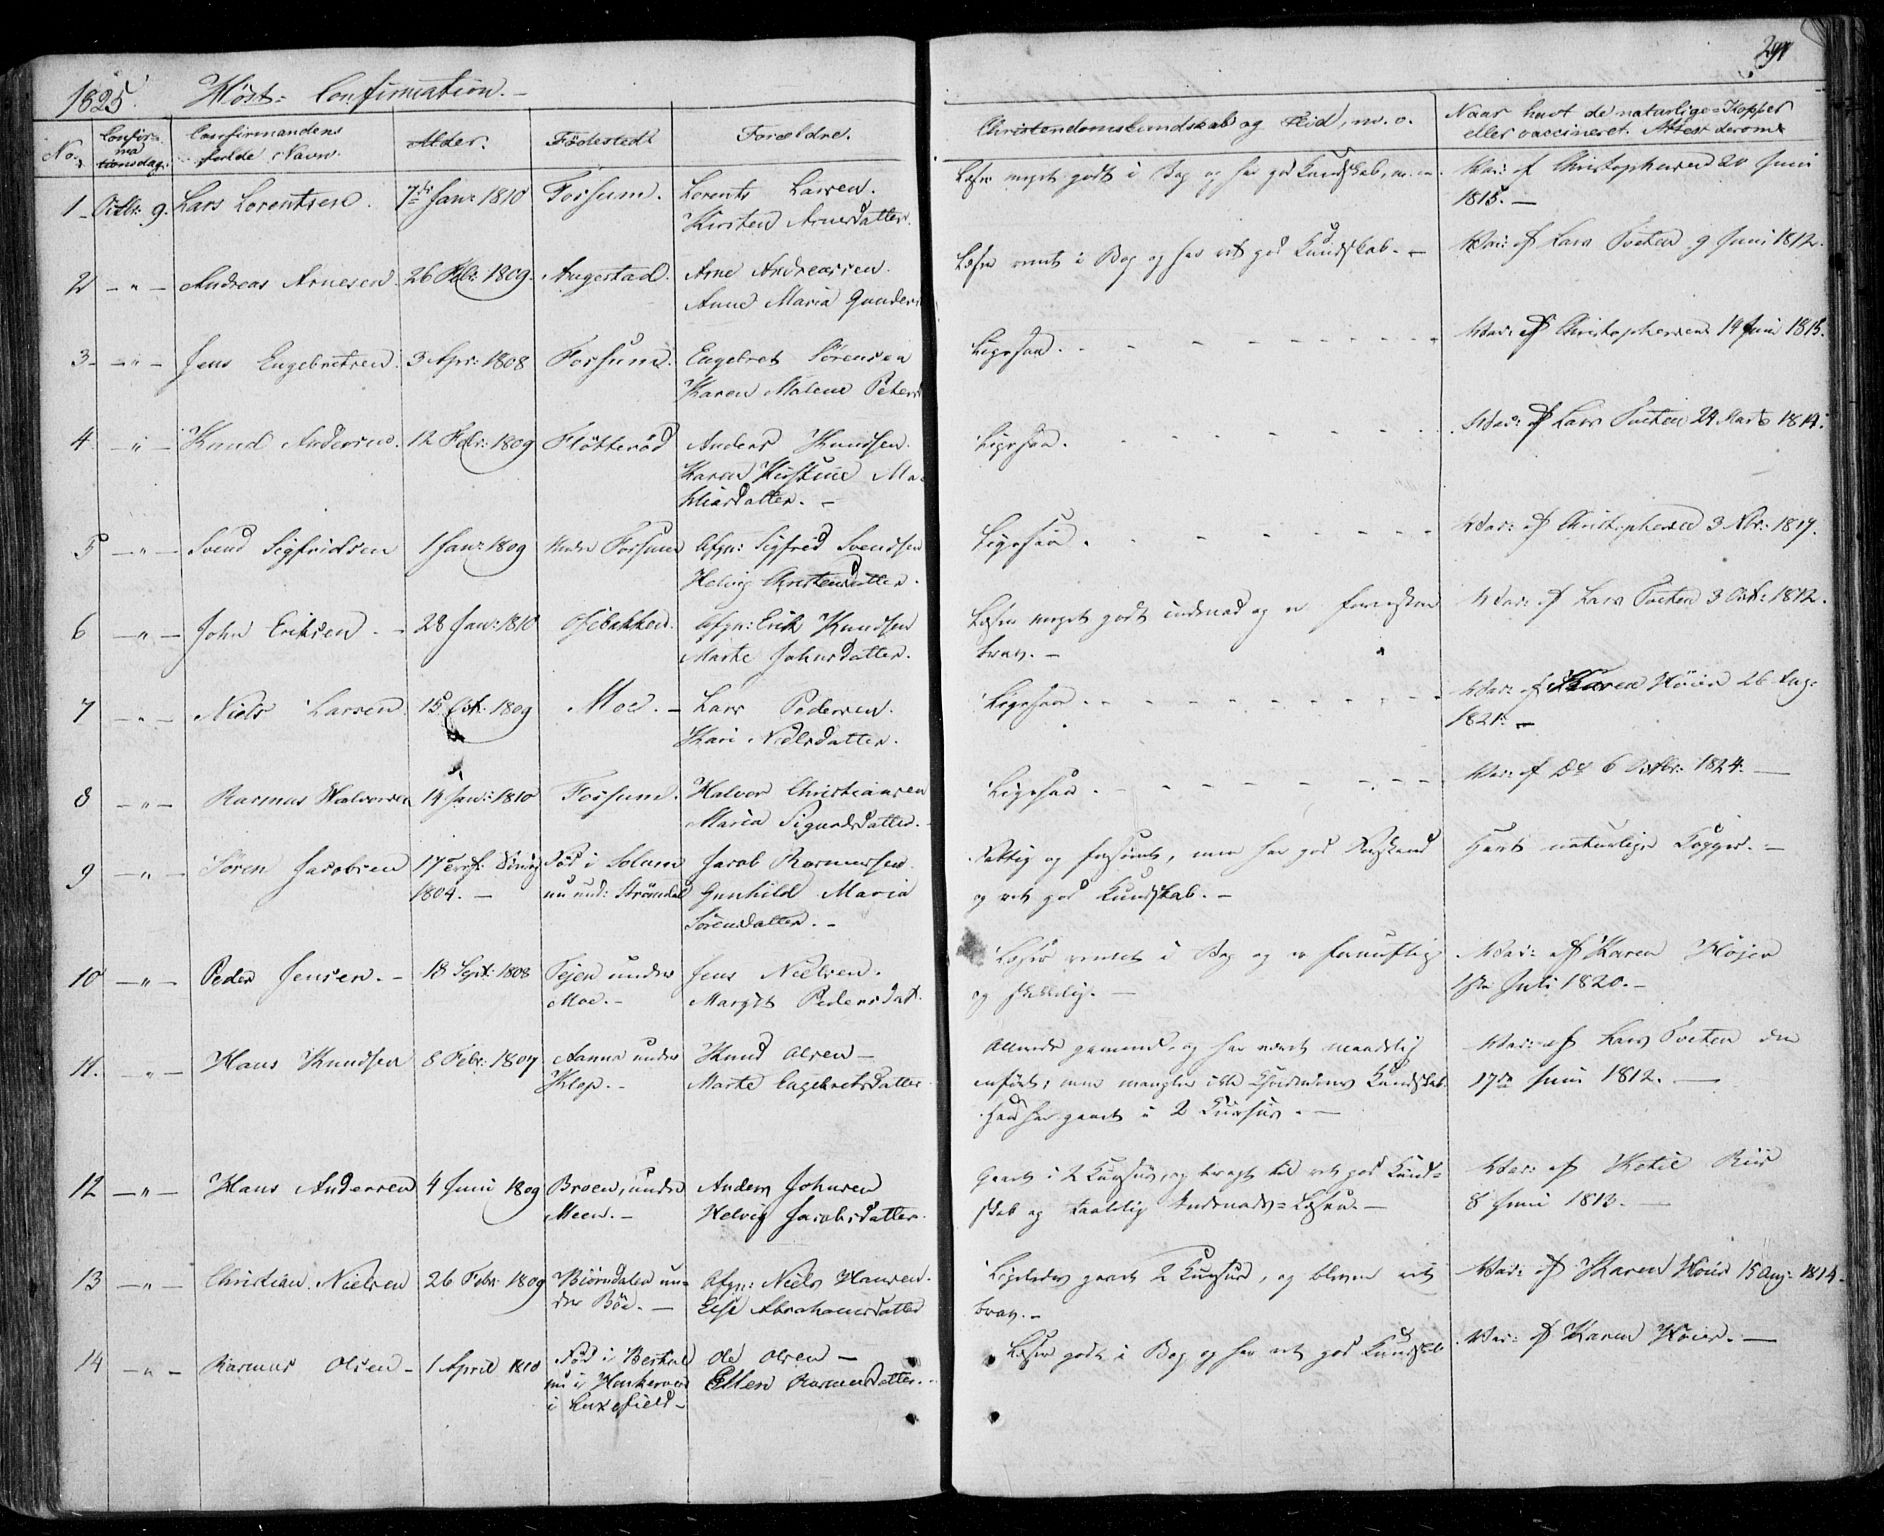 1825. Høst: Confirmation.
291
No.
Confirmationsdag.
Confirmandens fulde Navn.
Alder.
Fødested
Forældre.
Christendomskundskab og Flid, m. v.
Naar havt de naturlige Kopper
eller vaccineret. Attest derom
1. Octbr. 9. Lars Lorentsen. 7de Jan: 1810 Fossum. Lorents Larsen.
Kirsten Arnesdatter.
Læser meget godt i Bog og har god Kundskab, Vac: af Christophersen 20 Juni
1815. —
2 — " — Andreas Arnesen. 26 Febr: 1809. Augestad. Arne Andreassen.
Anne Maria Gunders
Læser rent i Bog og har ret god Kundskab. — Vac: af Lars Tveten 9 Juni 1812.
3 — " — Jens Engebretsen. 3 Apr: 1808 Fossum. Engebret Sørensen
Karen Malene Peters
Ligesaa. Vac: af Christophersen 14 Juni 1815.
4 — " — Knud Andersen. 12 Febr: 1809 Flötteröd Anders Knudsen.
Karen Kirstine Ma
thiasdatter. —
Ligesaa. Vac: af Lars Tveten 24 Marts 1814.
5 — " — Svend Sigfridsen 1 Jan: 1809 Under Fossum Afgn: Sigfred Svendsen
Helvig Christensdatter.
Ligesaa. Vac: af Christophersen 3 Nbr: 1817.
6 — " — John Eriksen. — 28 Jan: 1810 Osebakken. Afgn: Erik Knudsen
Marte Johnsdatter.
Læser meget godt indenad og er
brav. — Vac: af Lars Tveten 3 Oct: 1812.
7 — " — Niels Larsen 15 Oct: 1809 Moe. — Lars Pedersen.
Kari Nielsdatter.
Ligesaa Vac: af Karen Höier 26 Aug:
1821. —
8 — " — Rasmus Halvorsen 14 Jan: 1810 Fossum. Halvor Christiansen
Maria Sigurdsdatter.
Ligesaa. Vac: af Do 6 Octbr: 1824. —
9 — " — Sören Jacobsen 17
1804. — Fød i Solum
nu und: Strömdal Jacob Rasmussen.
Gunhild Maria
Sörensdatter. —
Fattig og forsømt, men har god Forstand
og ret god Kundskab. — Havt naturlige Kopper. —
10 — " — Peder Jensen. — 18 Sept: 1808 Tejen under
Moe. — Jens Nielsen.
Margit Pedersdat.
Læser rent i Bog og er fornuftig
og skikkelig. — Vac: af Karen Höjer
1ste Juli 1820. —
11. — " — Hans Knudsen 8 Febr: 1807 under
Klep. — Knud Olsen —
Marte Engebretsdatter
og har været maadelig
men mangler ikke Christendoms Kundskab
han har gaaet i 2 Kursus. — Vac: af Lars Tveten den
17de Juni 1812. —
12 — " — Hans Andersen 4 Juni 1809 Broen, under
Meen. — Anders Johnsen
Helvig Jacobsdatter.
Gaaet i 2 Kursus, og bragt til ret god Kund=
skab og taalelig Indenads=Læsen. — Vac: af Ketil Riis
8 Juni 1813. —
13 — " — Christian Nielsen 26 Febr: 1809 Biörndalen un=
der Böe. — Afgn: Niels Hansen.
Else Abrahamsdatter
Ligeledes gaaet 2 Kursus, og bleven ret
brav. — Vac: af Karen Höier 15 Aug: 1814.
14 — " — Rasmus Olsen — 1 April 1810 Fød i
nu i
i Luxefield — Ole Olsen —
Ellen Rasmusdatter.
Læser godt i Bog og har ret god Kundskab Vac: af Karen Höier. —